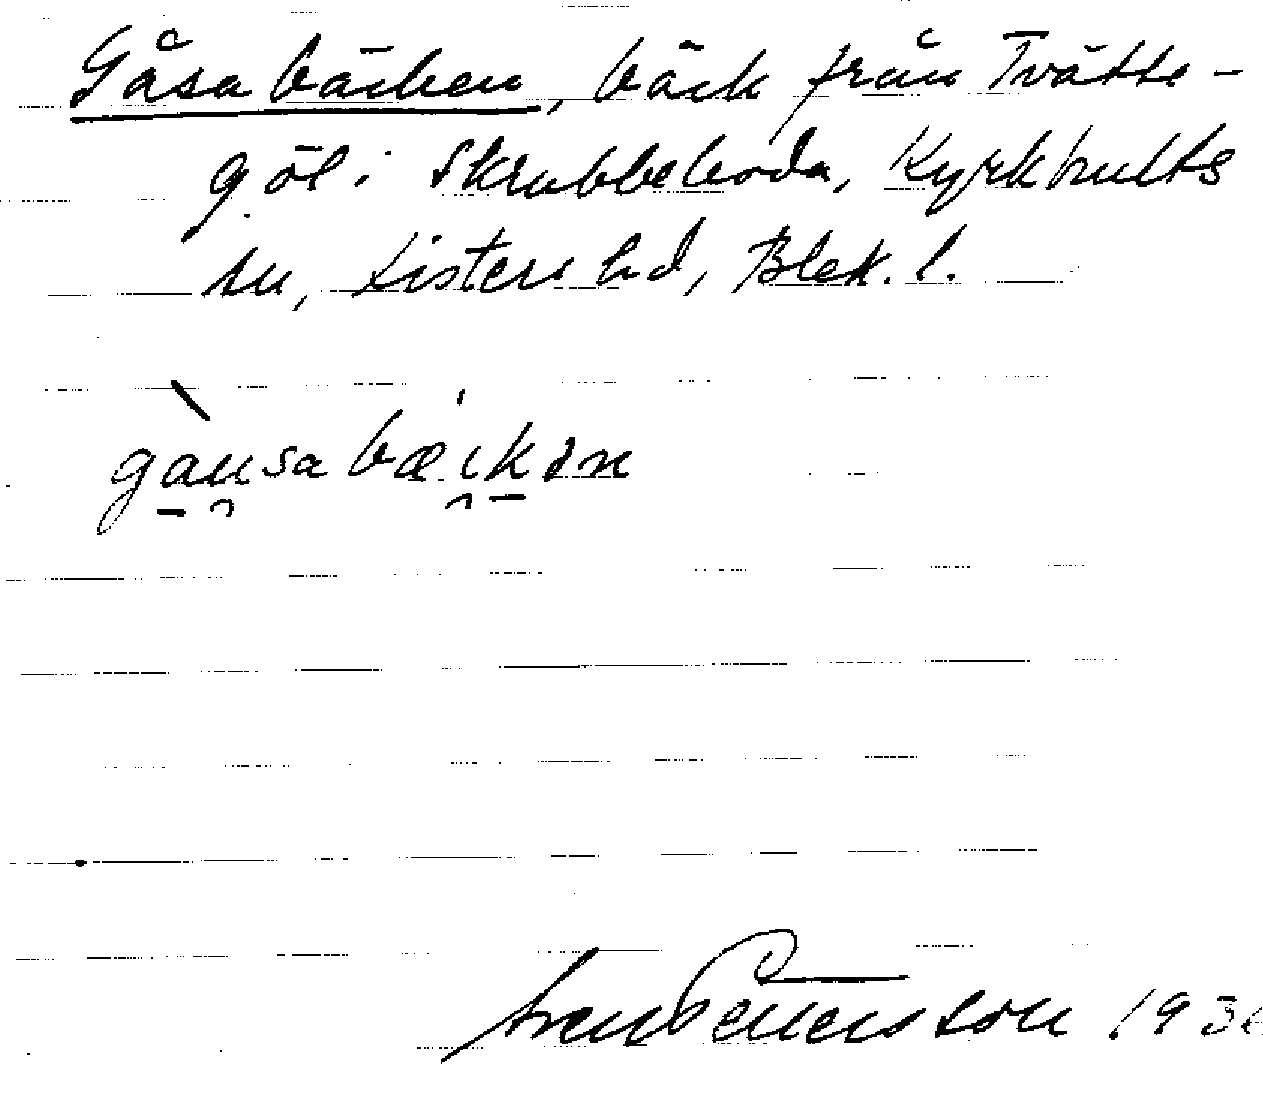 Gåsabäcken, bäck från Tvätte-
göl i Skrubbeboda, Kyrkhults
sn, Listers hd, Blek. l.
gàu̯sabæi̯kən
Sven Pettersson 193